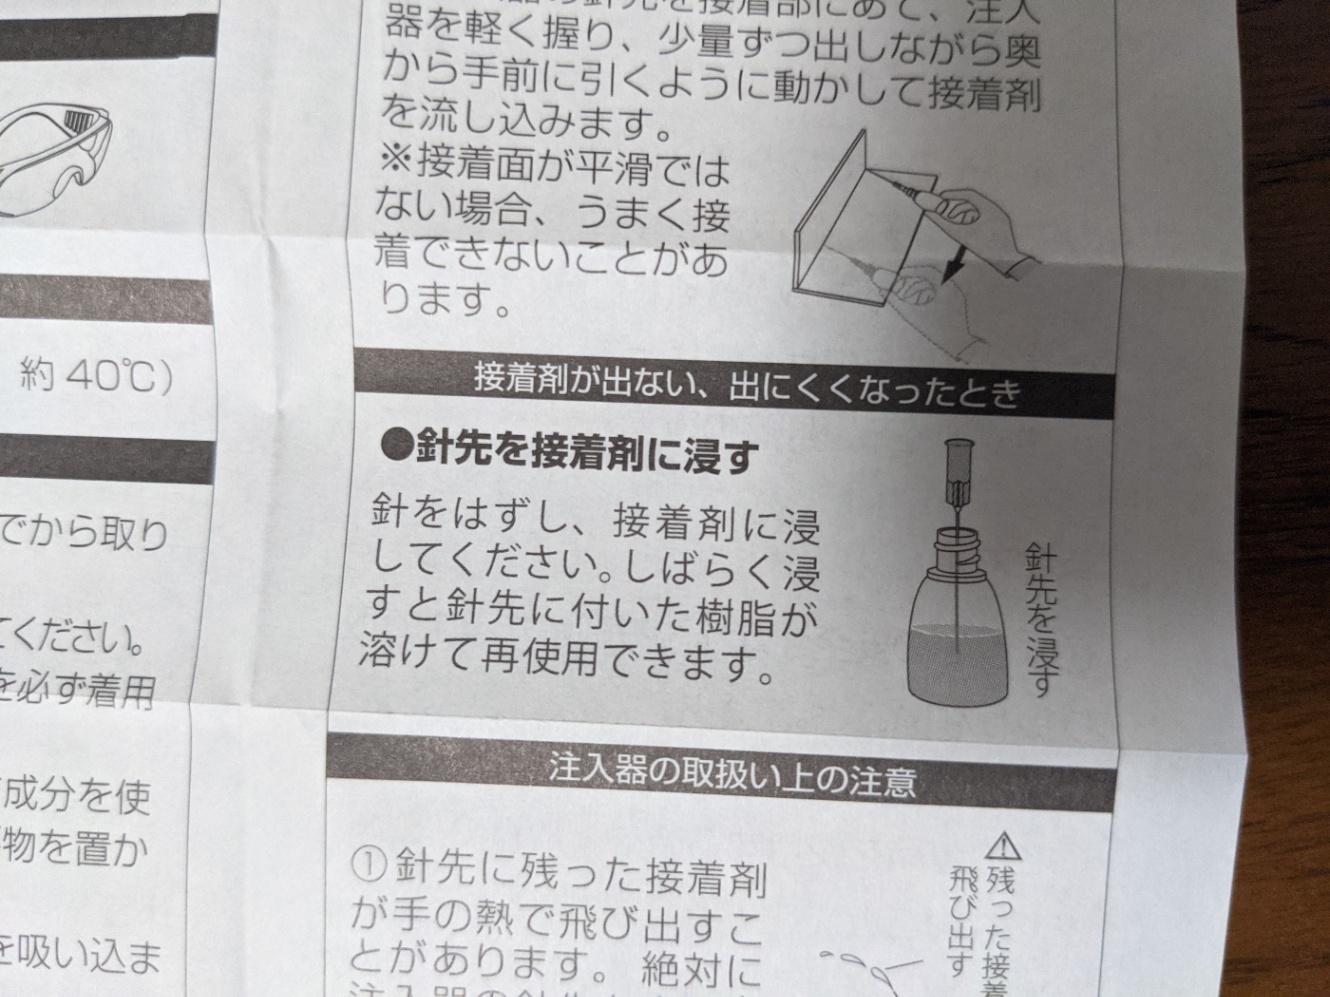 約40℃)
でから取り
てください。
を必ず着用
成分を使
物を置か
を吸い込ま
器の針先を接着部にあて、注入
器を軽く握り、少量ずつ出しながら奥
から手前に引くように動かして接着剤
を流し込みます。
※接着面が平滑では
ない場合、うまく接
着できないことがあ
ります。
接着剤が出ない、出にくくなったとき
●針先を接着剤に浸す
針をはずし、接着剤に浸
してください。しばらく浸
すと針先に付いた樹脂が
溶けて再使用できます。
針先を浸す
注入器の取扱い上の注意
①針先に残った接着剤
が手の熱で飛び出すこ
とがあります。絶対に
⚠残った接着
飛び出す